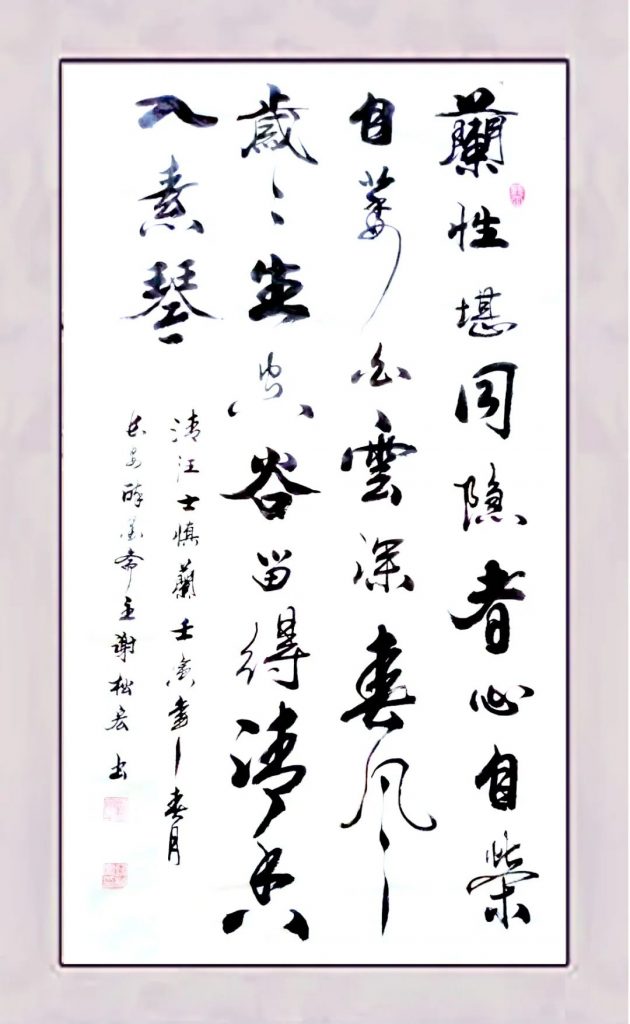 蘭性堪同隐者心自榮
自萎白雲深春风
歲〻生空谷留得清香
入素琴
清汪士慎蘭壬寅年春月
长安醉墨斋主謝松宏书